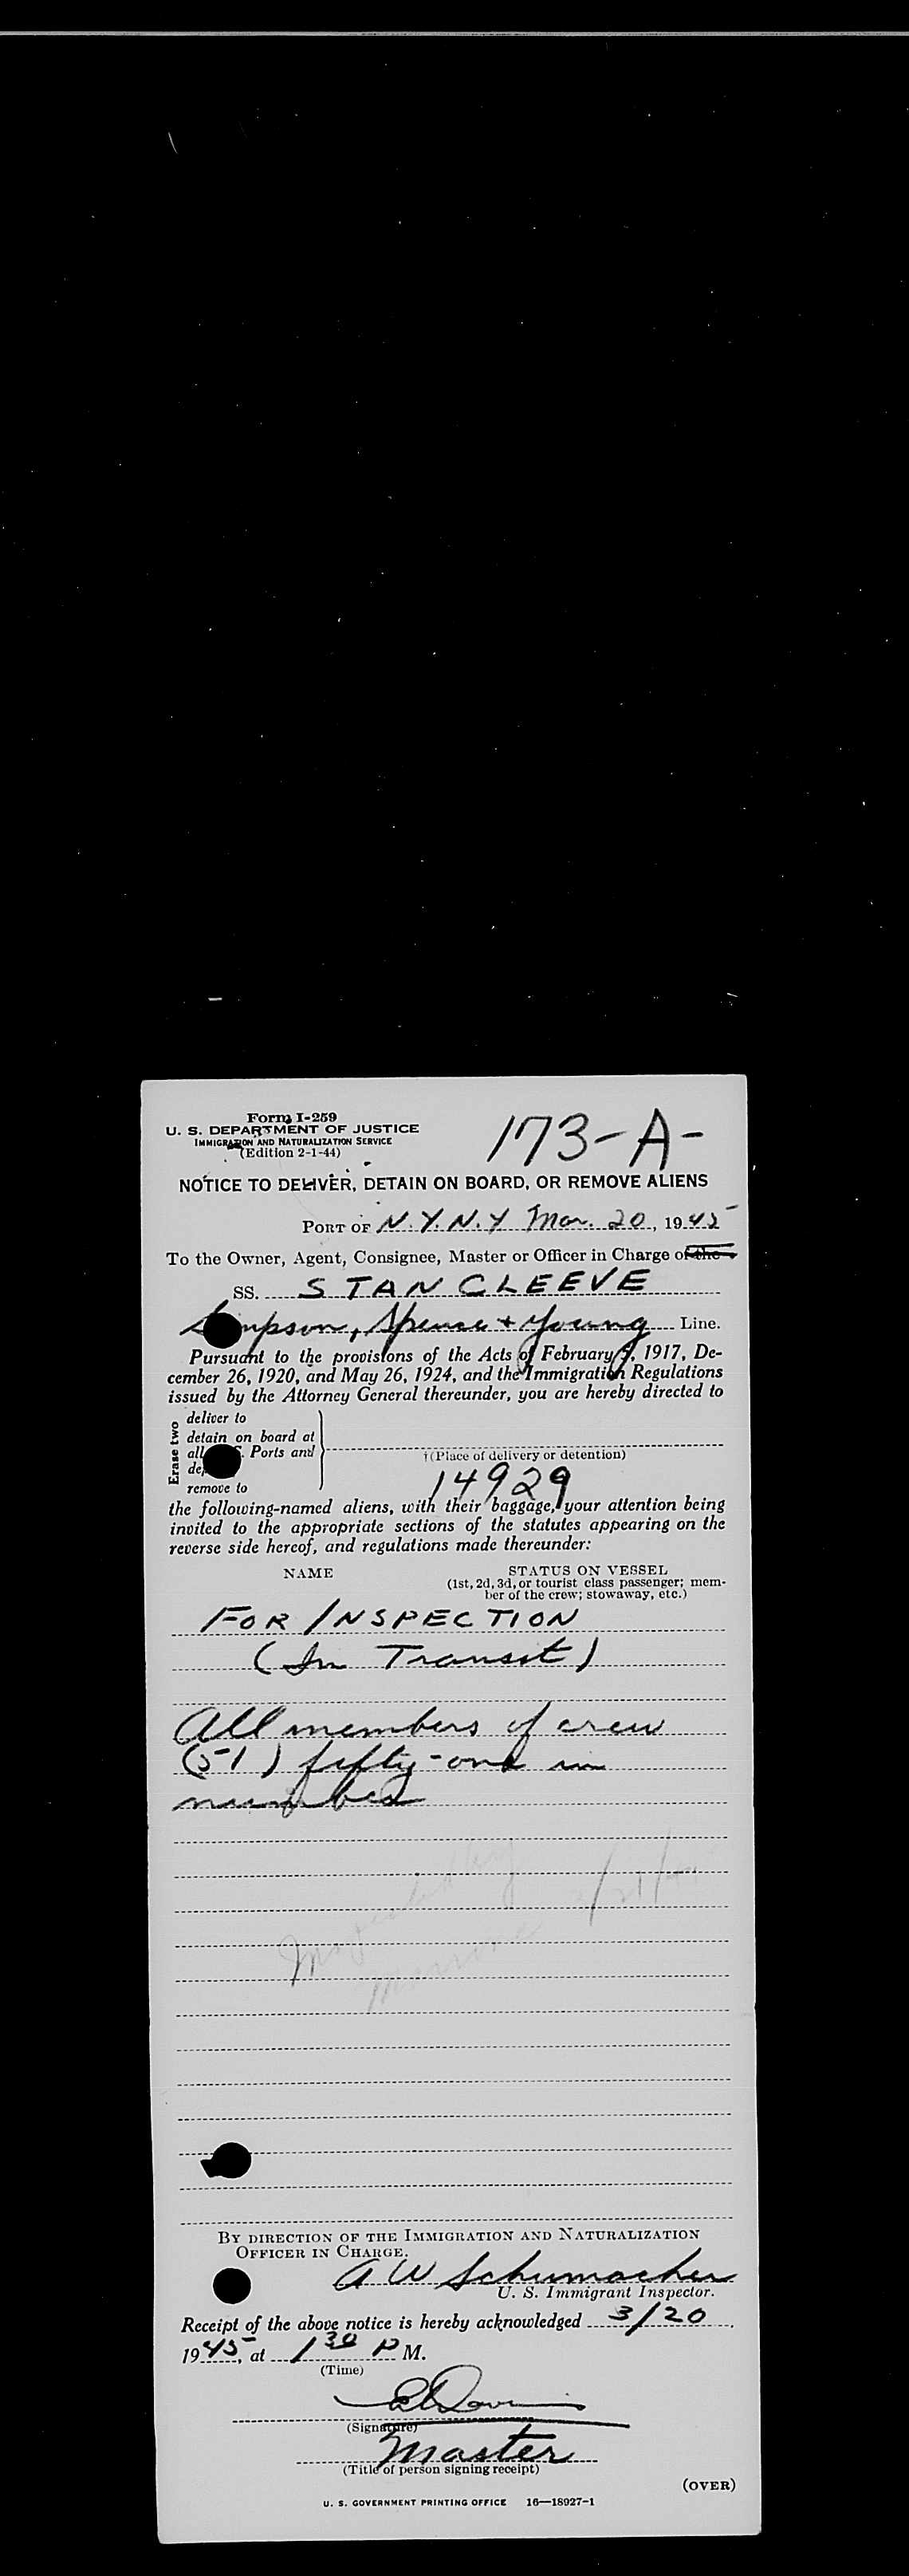 Form I-259
U. S. DEPARTMENT OF JUSTICE
IMMIGRATION AND NATURALIZATION SERVICE
(Edition 2-1-44)
173-A-
NOTICE TO DELIVER, DETAIN ON BOARD, OR REMOVE ALIENS
PORT OF N.Y.N.Y Mar. 20, 1945
To the Owner, Agent, Consignee, Master or Officer in Charge of the
SS. STANCLEEVE
Spence + Young Line.
Pursuant to the provisions of the Acts of February 5, 1917, De-
cember 26, 1920, and May 26, 1924, and the Immigration Regulations
issued by the Attorney General thereunder, you are hereby directed to
Erase two
deliver to
detain on board at
all S. Ports and
remove to
†(Place of delivery or detention)
14929
the following-named aliens, with their baggage, your attention being
invited to the appropriate sections of the statutes appearing on the
reverse side hereof, and regulations made thereunder:
NAME STATUS ON VESSEL
(1st, 2d, 3d, or tourist class passenger; mem-
ber of the crew; stowaway, etc.)
FOR INSPECTION
(In Transit)
All members of crew
(51) fifty-one in
number
BY DIRECTION OF THE IMMIGRATION AND NATURALIZATION
OFFICER IN CHARGE.
A W Schumacher
U. S. Immigrant Inspector.
Receipt of the above notice is hereby acknowledged 3/20,
1945, at 1 30 P M.
(Time)
(Signature)
Master
(Title of person signing receipt)
(OVER)
U. S. GOVERNMENT PRINTING OFFICE 16—18927-1